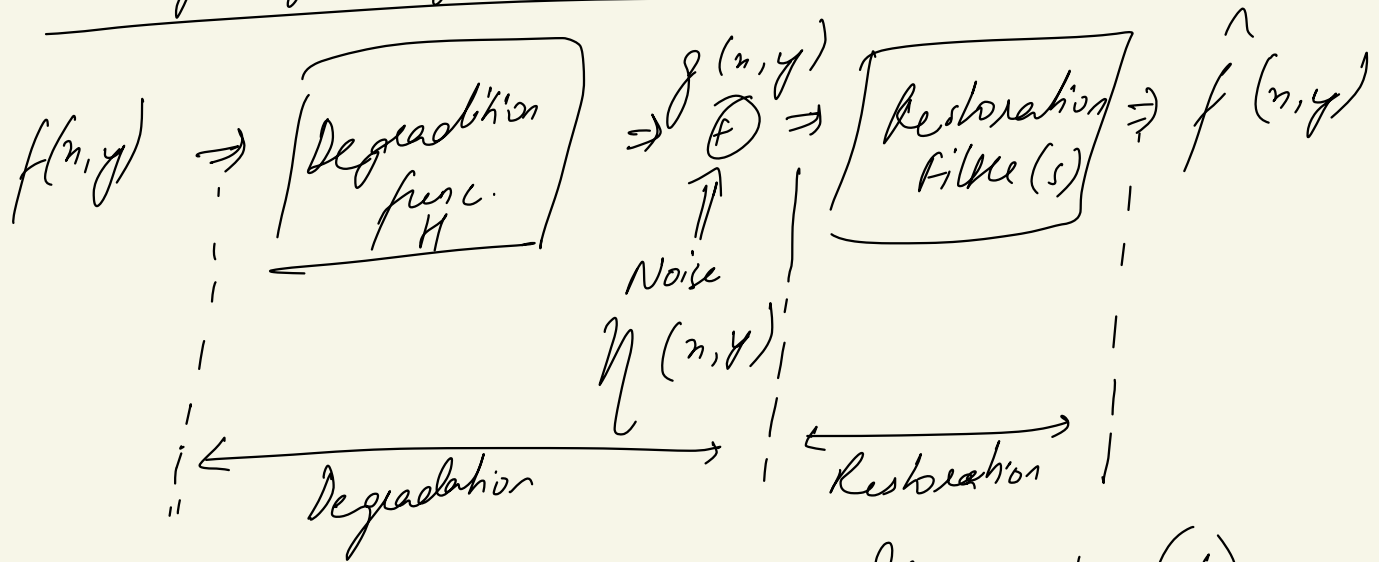 f(x,y) ⇒ Degradition func. H ⇒ g(x,y) ⊕ ⇒ Restoration Filter(s) ⇒ f̂(x,y)
⇑
Noise
η(x,y)
Degradation
Restoration